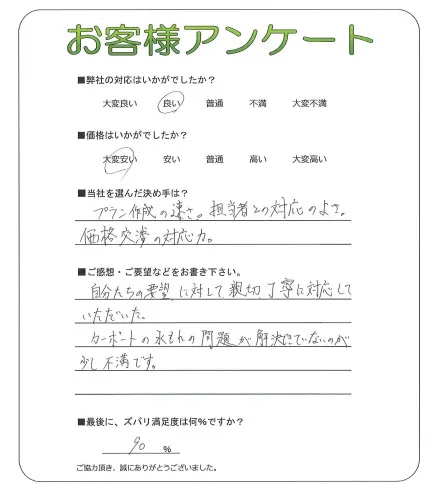 お客様アンケート
■弊社の対応はいかがでしたか?
大変良い 良い 普通 不満 大変不満
■価格はいかがでしたか?
大変安い 安い 普通 高い 大変高い
■当社を選んだ決め手は?
プラン作成の速さ。担当者との対応のよさ。
価格交渉の対応力。
■ご感想・ご要望などをお書き下さい。
自分たちの要望に対して、親切、丁寧に対応して
いただいた。
カーポートの水もれの問題が解決できていないのが
少し不満です。
■最後に、ズバリ満足度は何%ですか?
90 %
ご協力頂き、誠にありがとうございました。